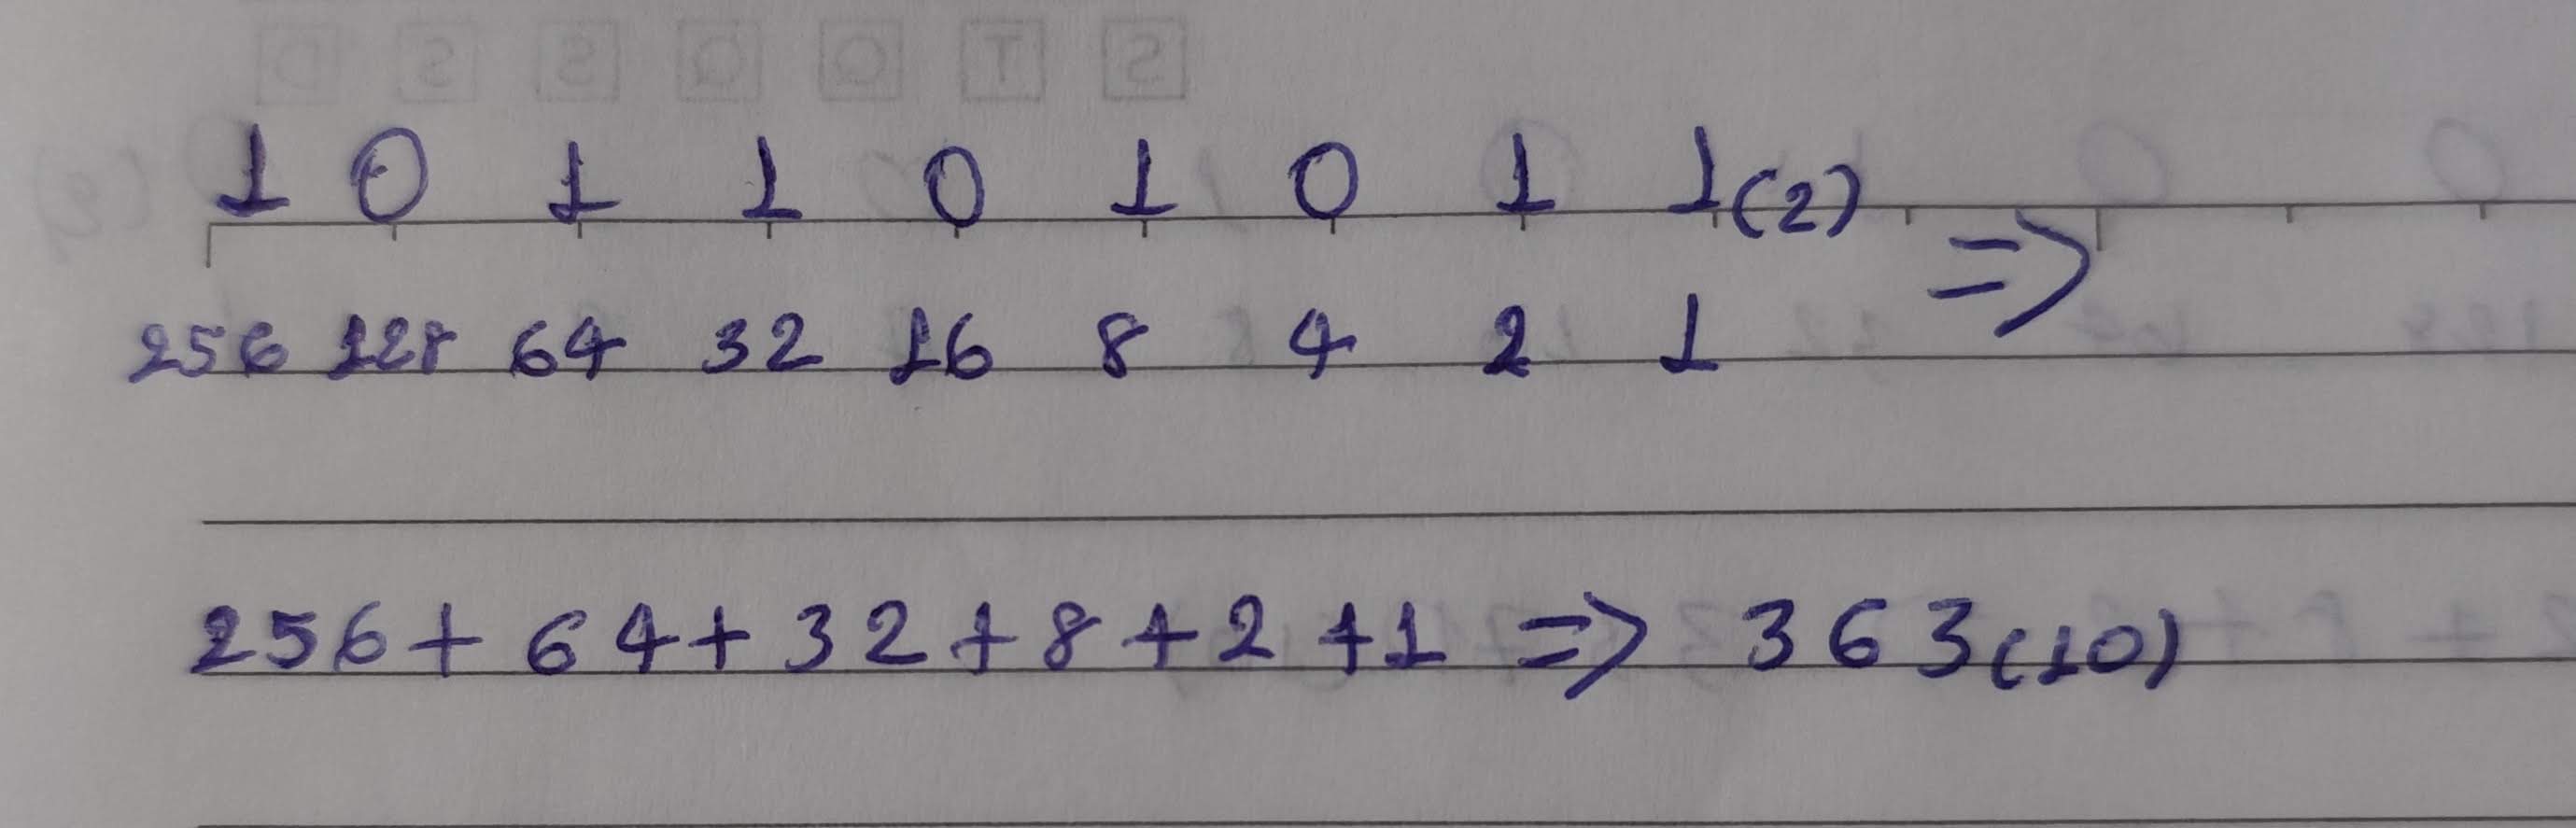 1 0 1 1 0 1 0 1 1(2) =>
256 128 64 32 16 8 4 2 1
256+ 64+ 32+8+2+1 => 363(10)